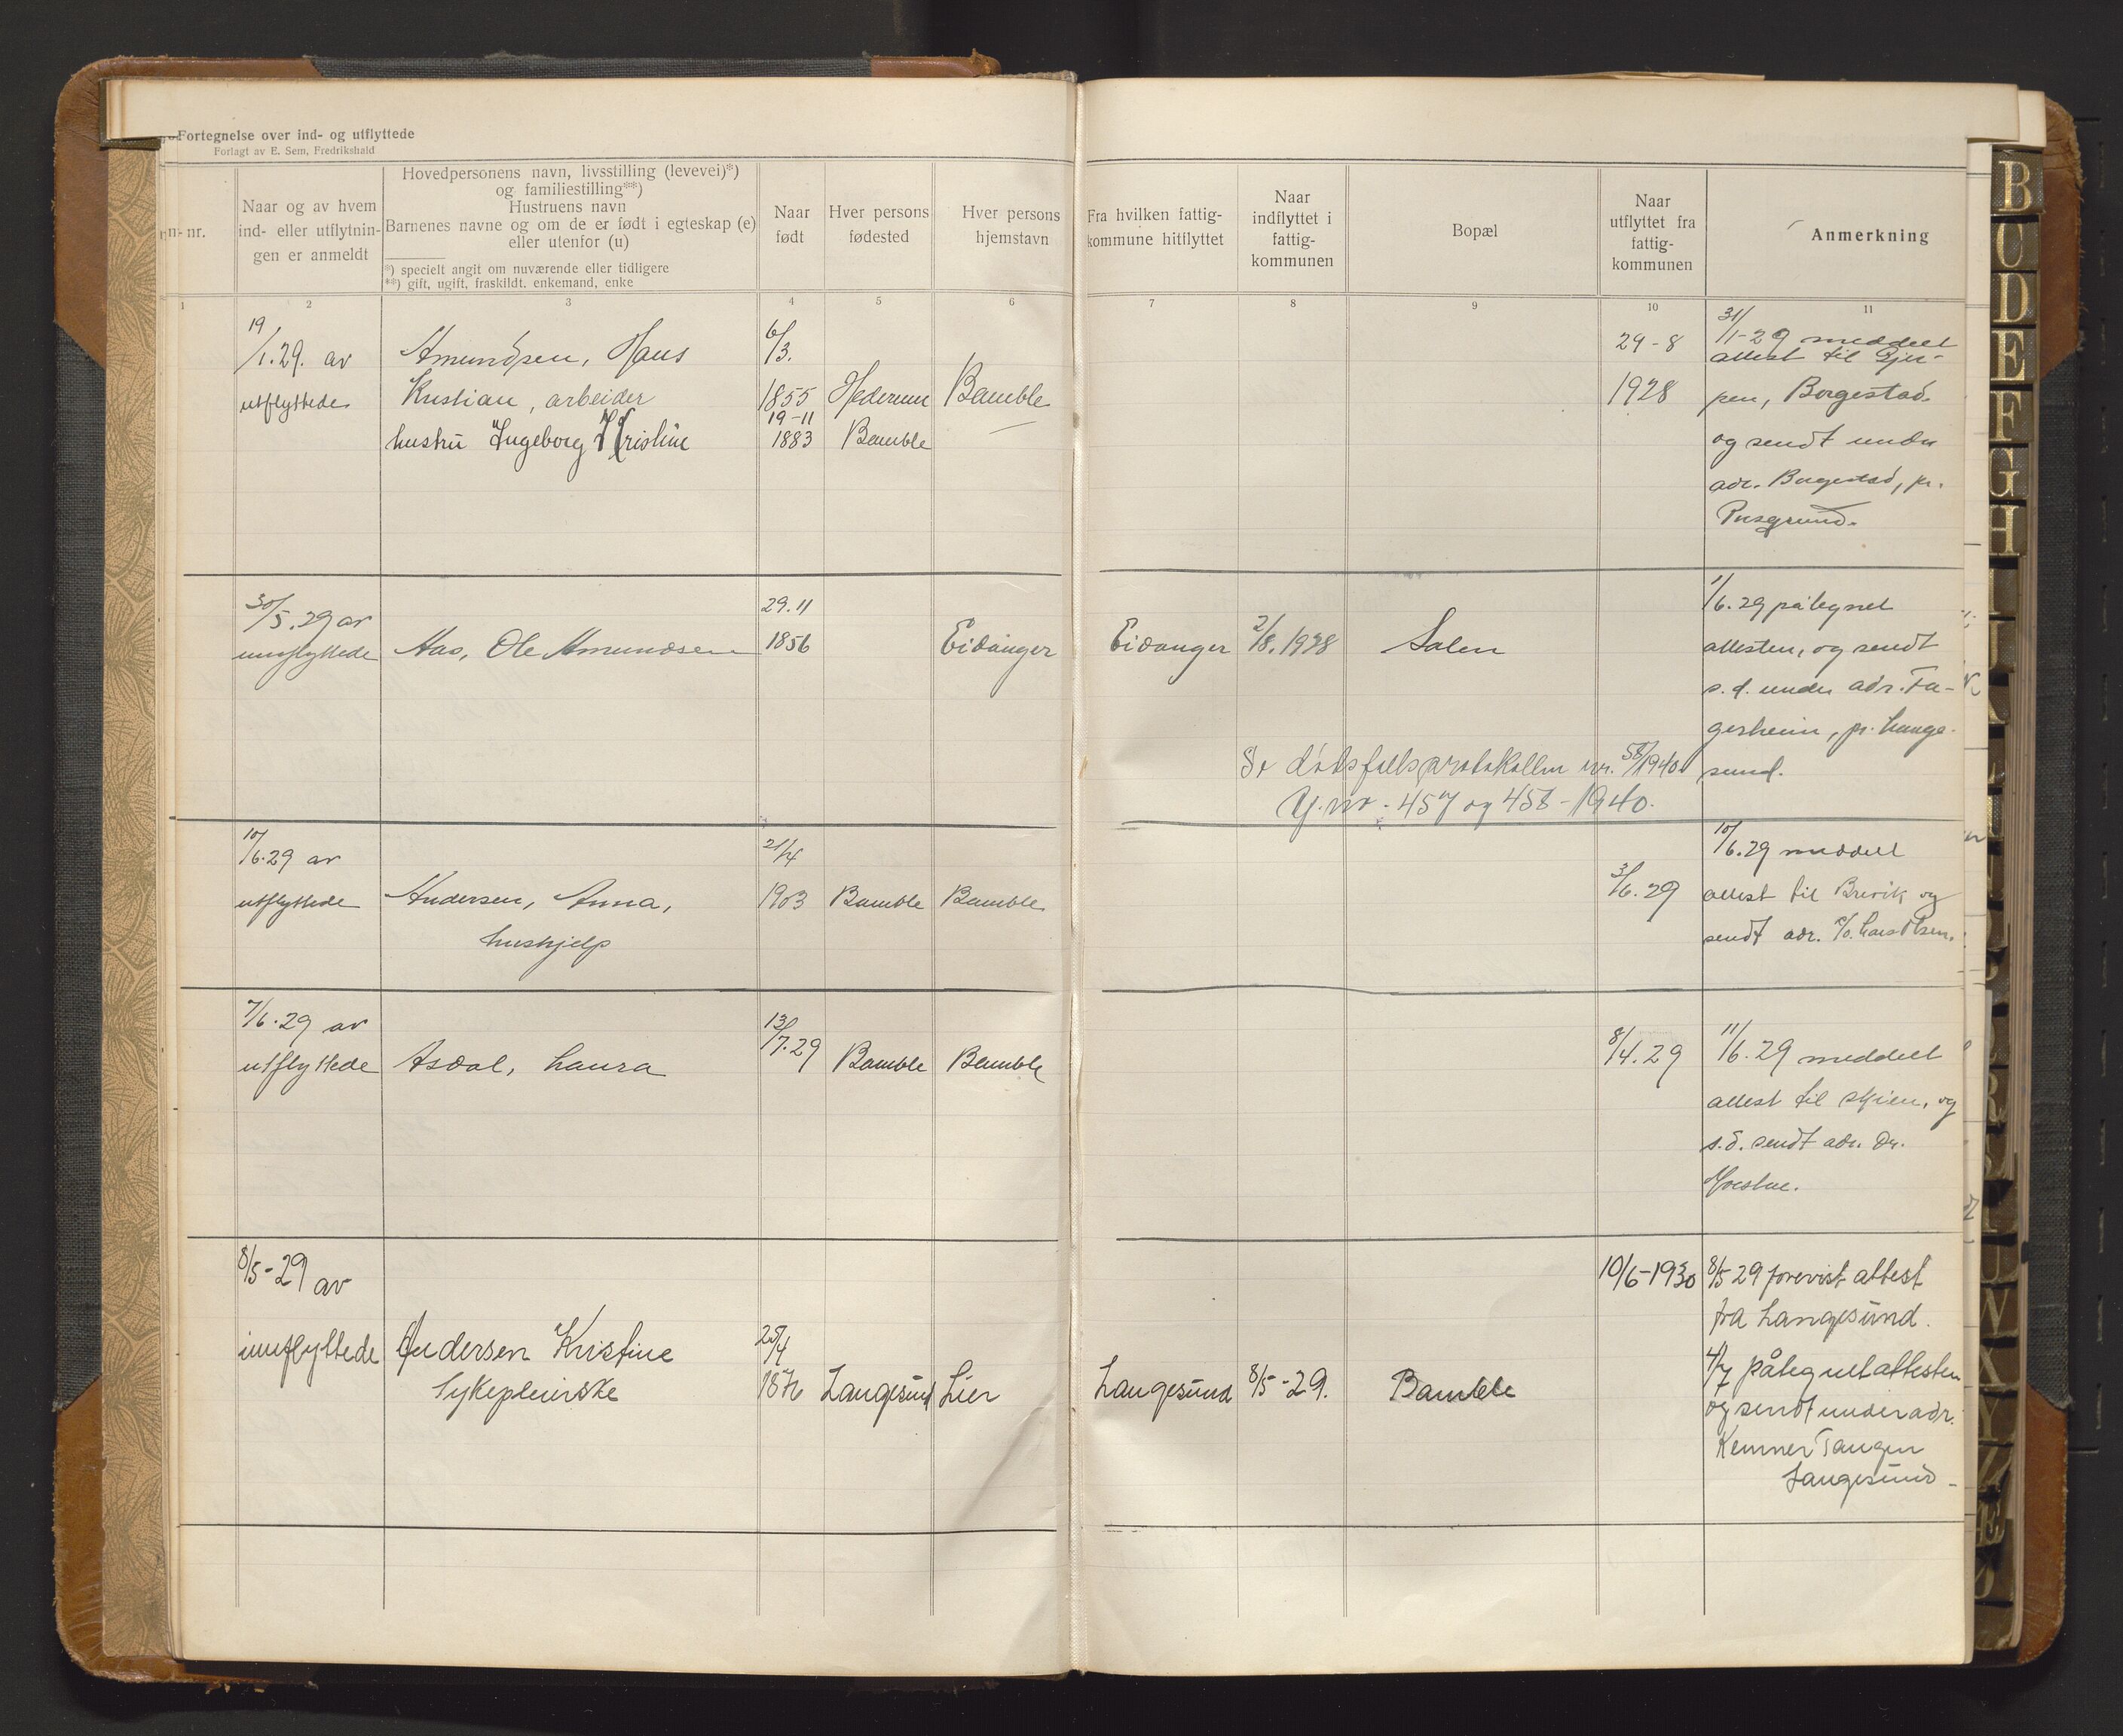 Fortegnelse over ind- og utflyttede
Forlagt av E. Sem, Fredrikshald
n- nr.
Naar og av hvem
ind- eller utflytnin-
gen er anmeldt
Hovedpersonens navn, livsstilling (levevei)*)
og familiestilling**)
Hustruens navn
Barnenes navne og om de er født i egteskap (e)
eller utenfor (u)
*) specielt angit om nuværende eller tidligere
**) gift, ugift, fraskildt, enkemand, enke
Naar
født
Hver persons
fødested
Hver persons
hjemstavn
Fra hvilken fattig-
kommune hitflyttet
Naar
indflyttet i
fattig-
kommunen
Bopæl
Naar
utflyttet fra
fattig-
kommunen
Anmerkning
1 2 3 4 5 6 7 8 9 10 11
19/1.29. av
utflyttede
Amundsen, Hans
Kristian, arbeider
hustru Ingeborg Kristine
6/3.
1855
19-11
1883
Hedrum
Bamble
Bamble
29-8
1928
31/1-29 meddelt
attest til Gjer-
pen, Borgestad.
og sendt under
adr. Borgestad, pr.
Porsgrund.
30/5.29 av
innflyttede
Aas, Ole Amundsen
29.11
1856
Eidanger
Eidanger
2/8.1928
Salen
1/6.29 påtegnet
attesten, og sendt
s.d. under adr. Fa-
gerheim, pr. Lange-
sund.
Se dødsfallsprotokollen nr. 58/1940
J.nr. 457 og 458-1940.
10/6.29 av
utflyttede
Andersen, Anna,
hushjelp
21/4
1903
Bamble
Bamble
3/6.29
10/6.29 meddelt
attest til Brevik og
sendt adr. c/o.
7/6.29 av
utflyttede
Asdal, Laura
13/7.29
Bamble
Bamble
8/4.29
11/6.29 meddelt
attest til Skien, og
s.d. sendt adr. Dr.
8/5-29 av
innflyttede
Andersen Kristine
Sykepleierske
25/4
1876
Langesund
Lier
Langesund
8/5-29.
Bamble
10/6-1930
8/5 29 forevist attest
fra Langesund.
4/7 påtegnet attesten
og sendt under adr.
Kemner Tangen
Langesund-
B
C
D
E
F
G
H